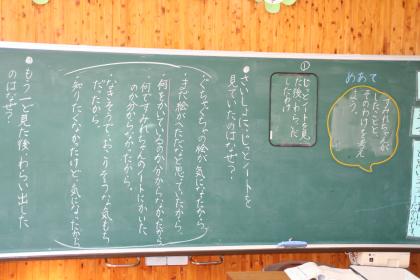 めあて
すみれちゃんが
したことと
そのわけを考え
よう。
①
じっとノートを見
た後、わらった
したわけ
●さいしょに、じっとノートを
見ていたのはなぜ？
・ぐちゃぐちゃの絵が気になったから。
・まだ絵がへただなと思っていたから。
・何をかいているのか分からなかったから
・何ですみれちゃんのノートにかいた
のか分からなかったから。
だったから。
・知りたくなかったけど、気になったから
●もう一ど見た後、わらい出した
のはなぜ？